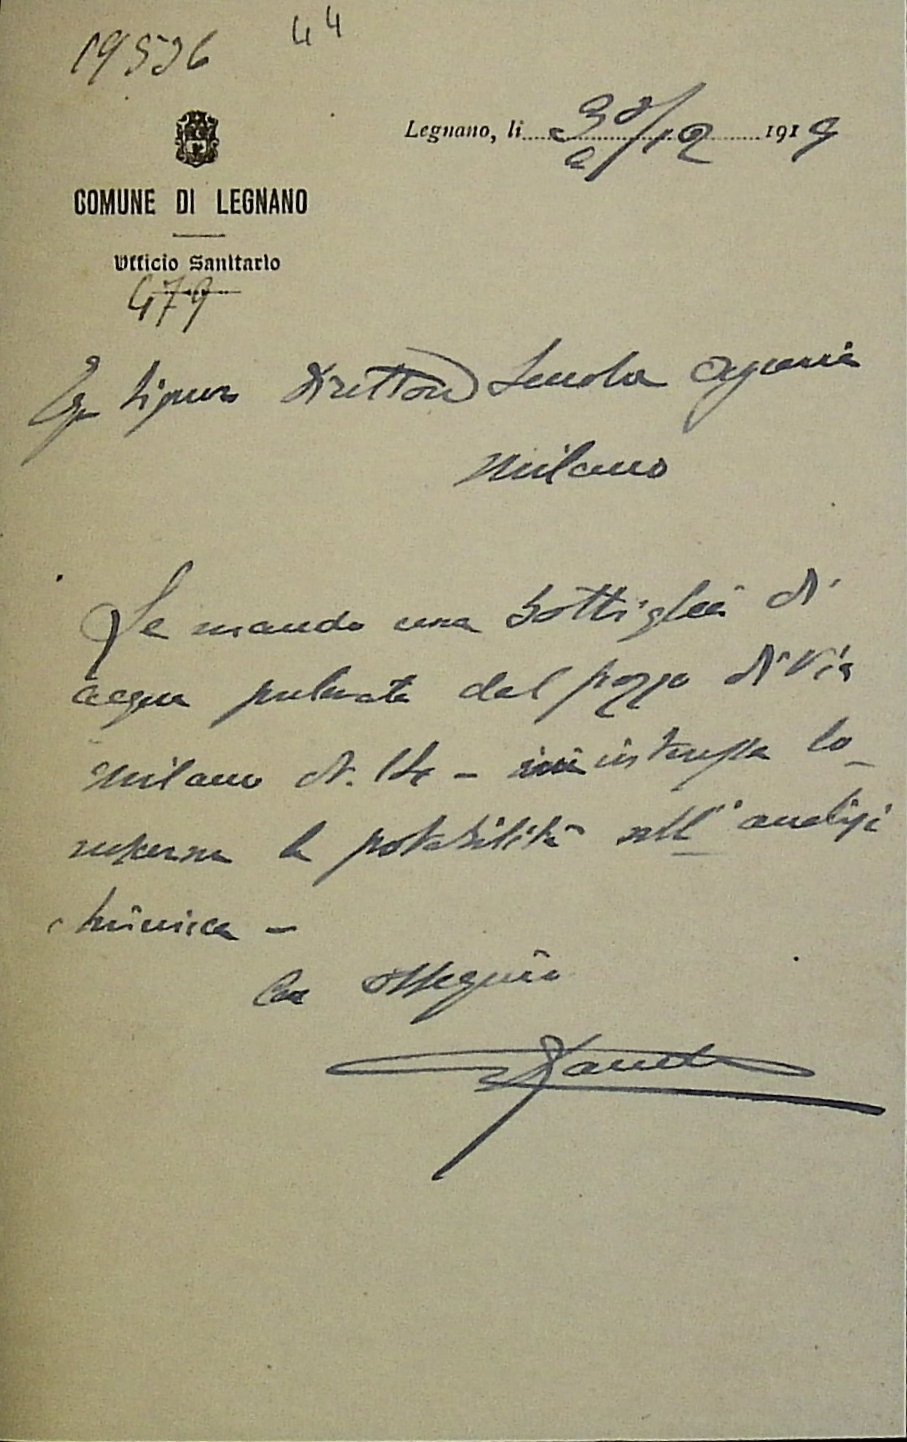 19536 44
Legnano, li 30/12 1919
COMUNE DI LEGNANO
Ufficio Sanitario
479
Eg Signor Direttore Scuola Agraria
Milano
Le mando una bottiglia di
acqua prelevata dal pozzo di Via
Milano N. 14 - interessa
la potabilità all'analisi
chimica -
Con ossequio